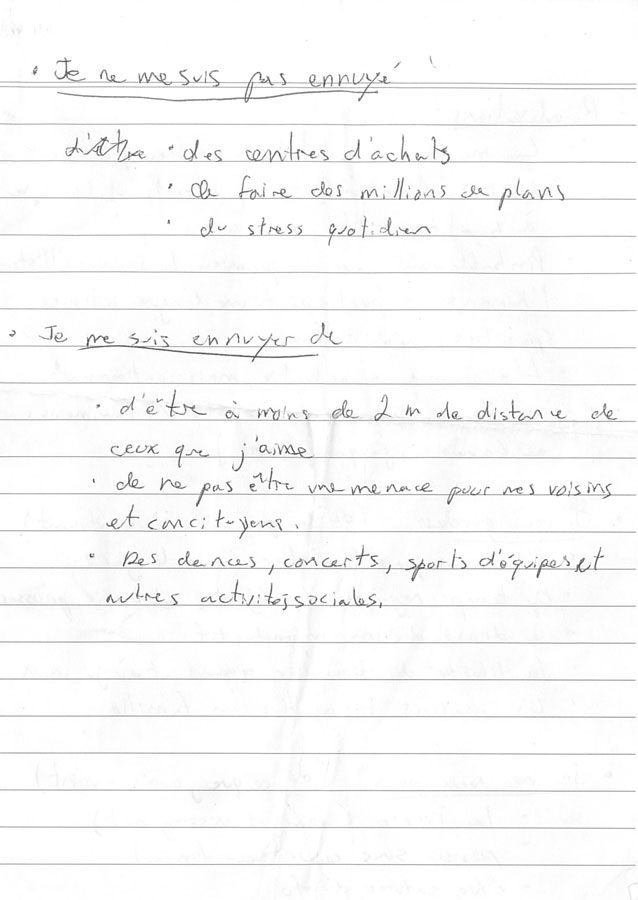 • Je ne me suis pas ennuyé
• des centres d'achats
• de faire des millions de plans
• du stress quotidien
• Je me suis ennuyer de
• d'être à moins de 2 m de distance de
ceux que j'aime
• de ne pas être une menace pour mes voisins
et concitoyens.
• Des dances, concerts, sports d'équipes et
autres activités sociales.